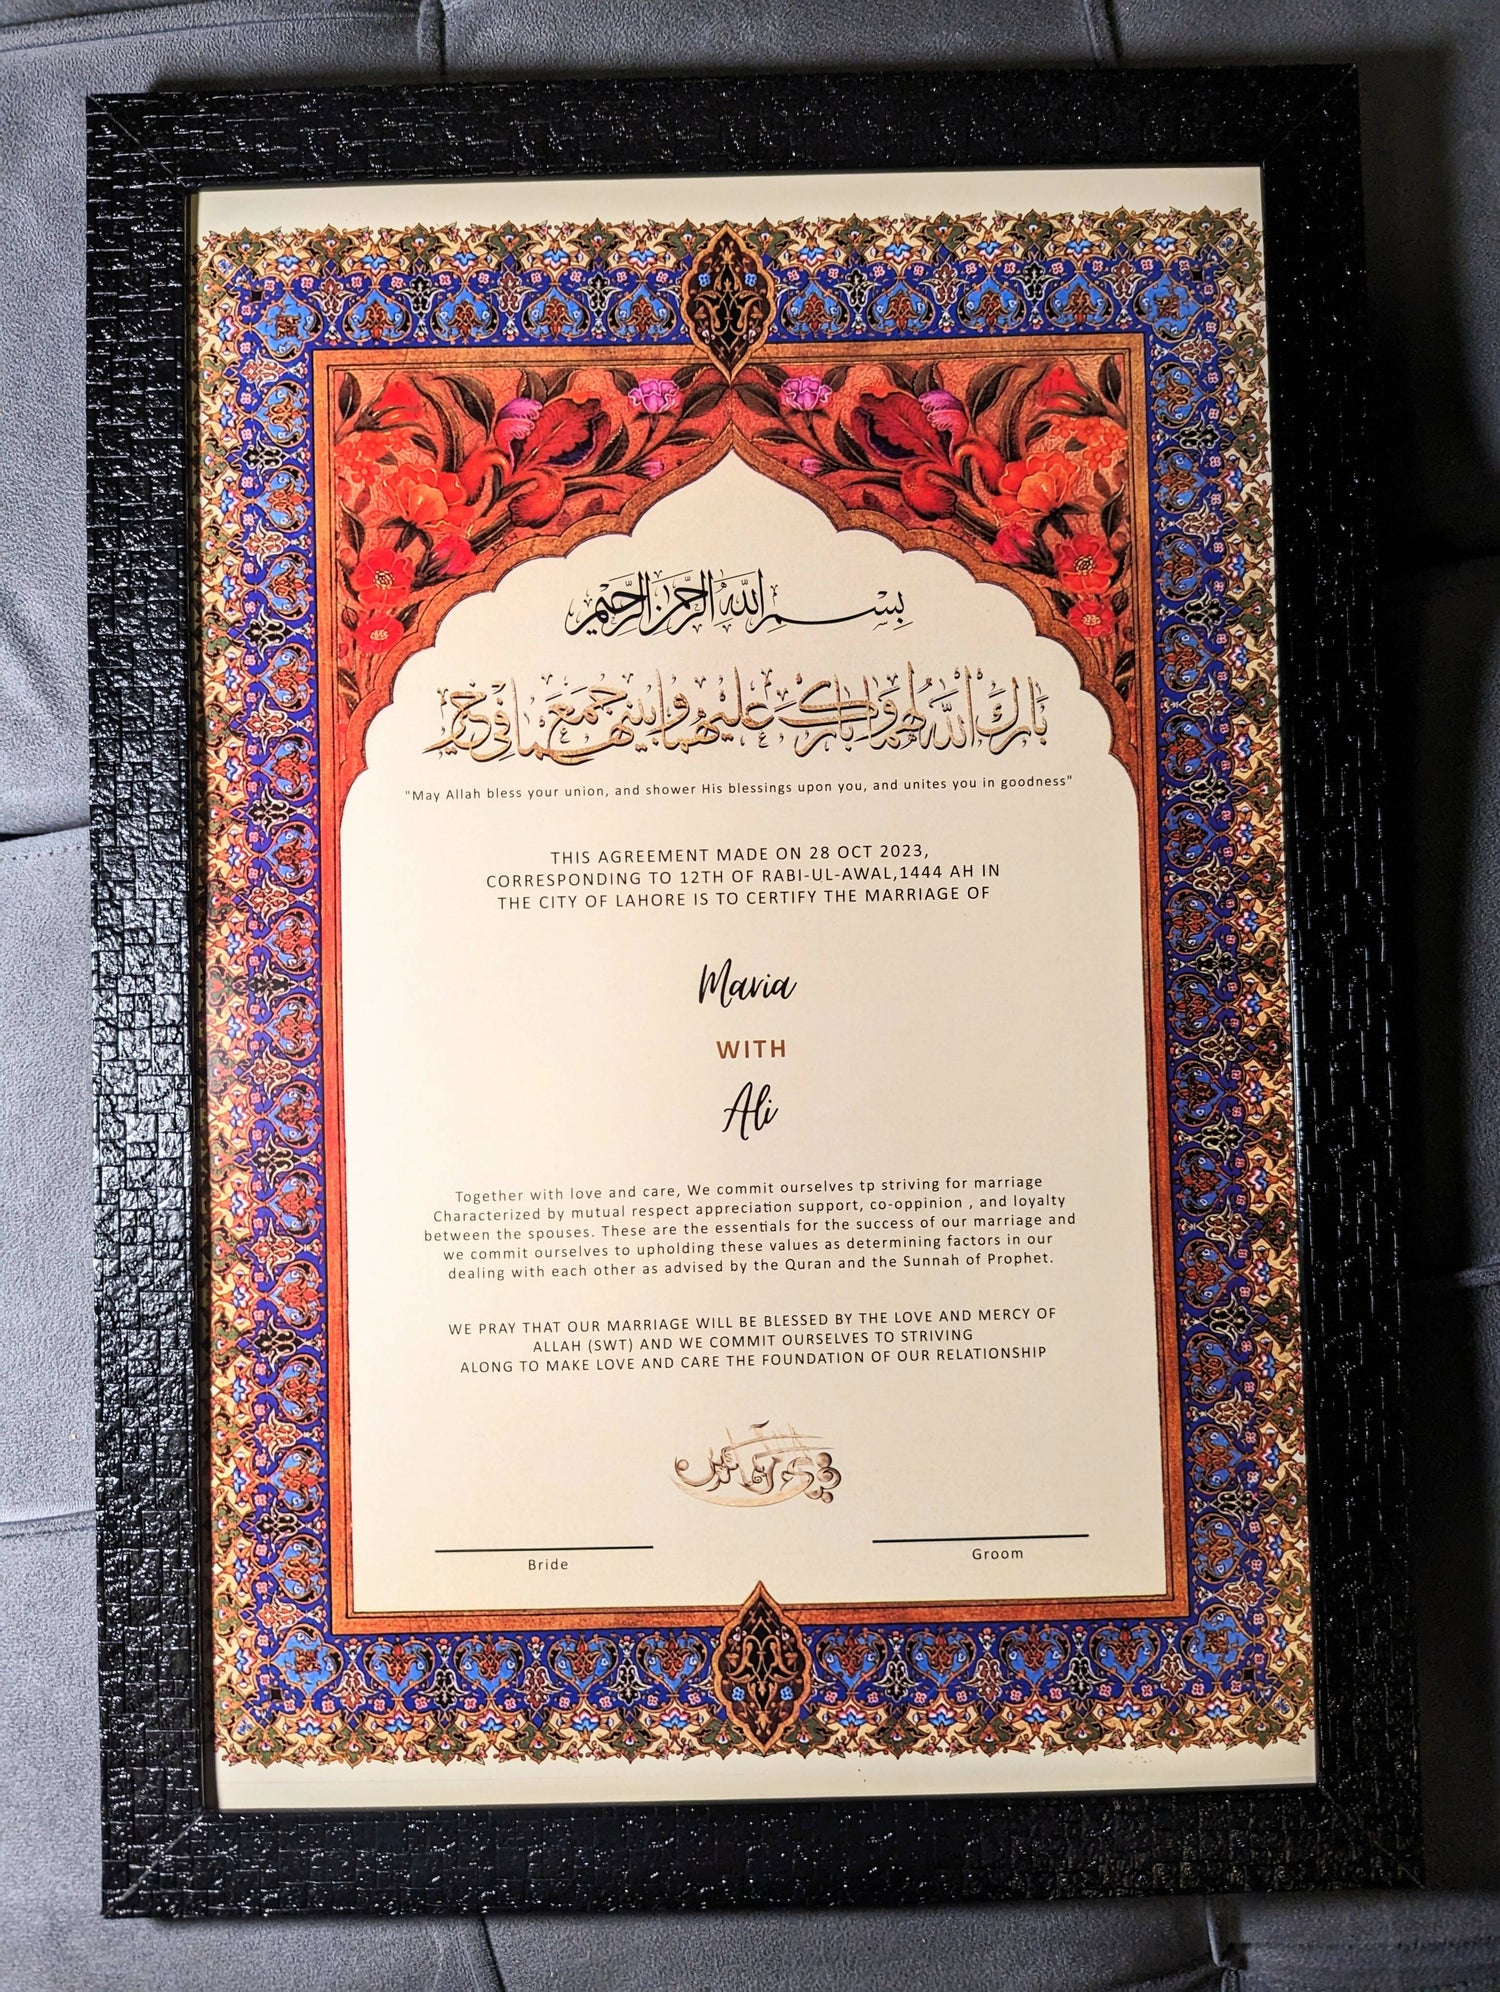 بِسْمِ اللهِ الرَّحْمٰنِ الرَّحِيْمِ
بَارَكَ اللهُ لَهُمَا وَبَارَكَ عَلَيْهِمَا وَجَمَعَ بَيْنَهُمَا فِي خَيْر
"May Allah bless your union, and shower His blessings upon you, and unites you in goodness"
THIS AGREEMENT MADE ON 28 OCT 2023,
CORRESPONDING TO 12TH OF RABI-UL-AWAL,1444 AH IN
THE CITY OF LAHORE IS TO CERTIFY THE MARRIAGE OF
Maria
WITH
Ali
Together with love and care, We commit ourselves tp striving for marriage
Characterized by mutual respect appreciation support, co-oppinion , and loyalty
between the spouses. These are the essentials for the success of our marriage and
we commit ourselves to upholding these values as determining factors in our
dealing with each other as advised by the Quran and the Sunnah of Prophet.
WE PRAY THAT OUR MARRIAGE WILL BE BLESSED BY THE LOVE AND MERCY OF
ALLAH (SWT) AND WE COMMIT OURSELVES TO STRIVING
ALONG TO MAKE LOVE AND CARE THE FOUNDATION OF OUR RELATIONSHIP
Bride
Groom